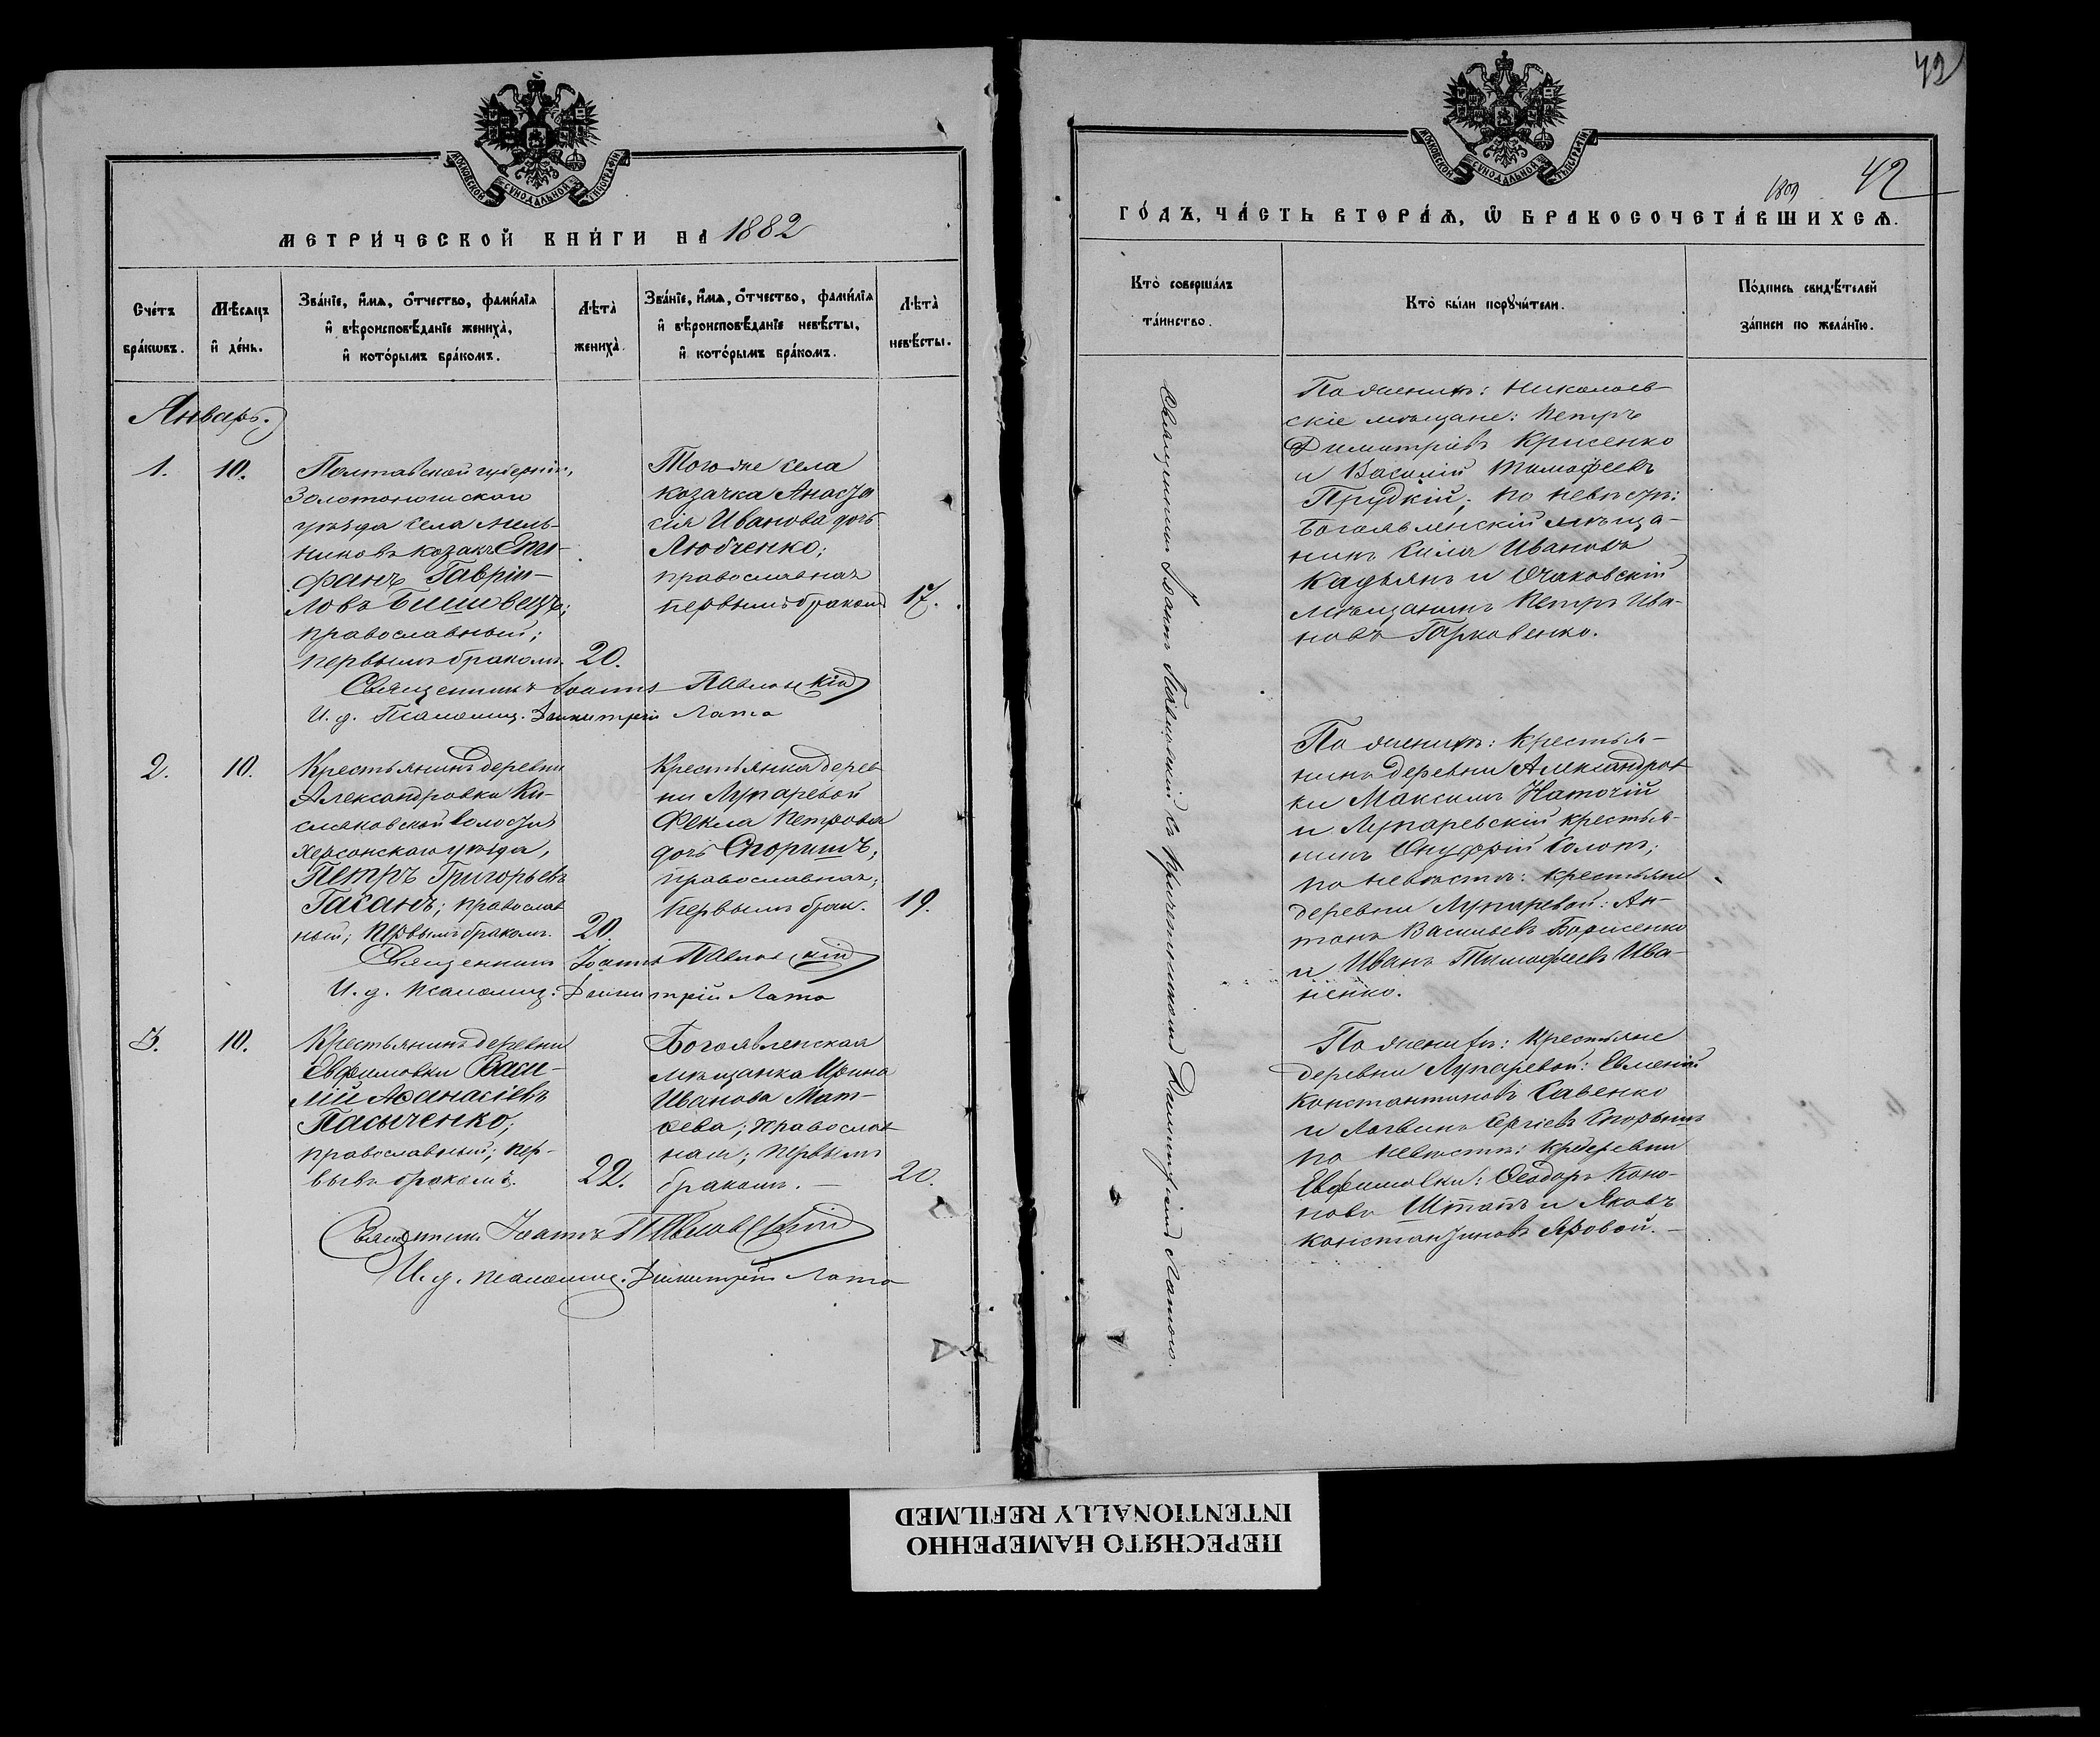 МОСКОВСКОЙ СУНОДАЛЬНОЙ ТИПОГРАФІИ
МЕТРИ́ЧЕСКОЙ КНИ́ГИ НА 1882
Сче́тъ бра́кωвъ.
Мѣ́сяцъ и҆ де́нь.
Зва́нїе, и҆́мѧ, ѻ҆́тчество, фами́лїѧ
и҆ вѣроисповѣ́данїе жениха̀,
и҆ кото́рымъ бра́комъ.
Лѣта̀ жениха̀.
Зва́нїе, и҆́мѧ, ѻ҆́тчество, фами́лїѧ
и҆ вѣроисповѣ́данїе невѣ́сты,
и҆ кото́рымъ бра́комъ.
Лѣта̀ невѣ́сты.
Январь.
1.
10.
Полтавской губерніи,
Золотоношскаго
уѣзда села Мель-
никовъ козакъ Епи-
фанъ Гавріи-
ловъ Бишовецъ;
православный;
первымъ бракомъ.
20.
Того же села
козачка Анаста
сія Иванова дочь
Любченко;
православная
первымъ бракомъ
17.
Священникъ Іоаннъ Павловскій
И. д. Псаломщ. Димитрій Лато
2.
10.
Крестьянинъ деревни
Александровки Ки-
сляковской волости
Херсонскаго уѣзда,
Петръ Григорьевъ
Гасанъ; православ
ный; первымъ бракомъ.
20.
Крестьянка дерев
ни Лупаревой
Фекла Петрова
дочь Споришъ;
православная;
первымъ брак.
19.
Священникъ Іоаннъ Павловскій
И. д. псаломщ. Димитрій Лато
3.
10.
Крестьянинъ деревни
Евфимовки Васи-
лій Аѳанасіевъ
Пасыченко;
православный; пер-
вымъ бракомъ.
22.
Богоявленская
мѣщанка Ирина
Иванова Мат-
ѳева; православ
ная; первымъ
бракомъ. —
20.
Священникъ Іоаннъ Павловскій
И. д. псаломщ. Димитрій Лато
42
МОСКОВСКОЙ СУНОДАЛЬНОЙ ТИПОГРАФІИ
42
ГО́ДЪ, ЧА́СТЬ ВТОРА́Ѧ, Ѽ БРАКОСОЧЕТА́ВШИХСѦ.
Кто̀ соверша́лъ
та́инство.
Кто̀ бы́ли порꙋчи́тели.
По́дпись свидѣ́телей
за́писи по жела́нїю.
Священникъ Іоаннъ Павловскій съ причетникомъ Димитріемъ Латою.
По женихѣ: Николаев
скіе мѣщане: Петръ
Димитріевъ Крисенко
и Василій Тимофеевъ
Прудкій; по невѣстѣ:
Богоявленскій мѣща-
нинъ Кила Ивановъ
Кадьянъ и Очаковскій
мѣщанинъ Петръ Ива-
новъ Гарковенко.
По женихѣ: крестья-
нинъ деревни Александров
ки Максимъ Наточій
и Лупаревскій крестья-
нинъ Онуфрій Солопъ;
по невѣстѣ: крестьяне
деревни Лупаревой: Ан-
тонъ Васильевъ Борисенко
и Иванъ Тимофеевъ Ива-
ненко.
По женихѣ: крестьяне
деревни Лупаревой: Евменій
Константиновъ Савенко
и Логвинъ Сергіевъ Споришъ
по невѣстѣ: кр деревни
Евфимовки: Ѳеодоръ Коно-
новъ Штапъ и Яковъ
Константиновъ Яровой. —
ПЕРЕСНЯТО НАМЕРЕННО
INTENTIONALLY REFILMED